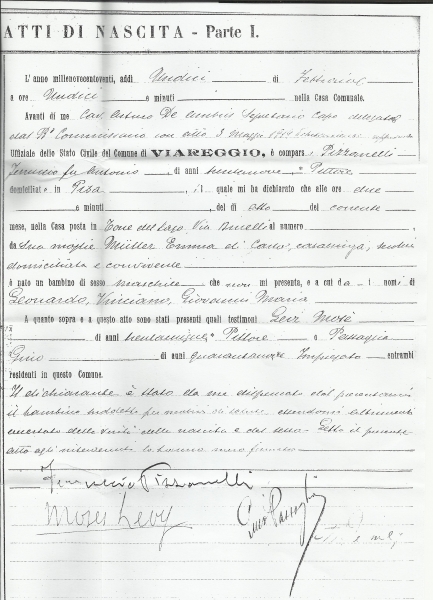 ATTI DI NASCITA - Parte I.
L'anno millenovecentoventi, addì Undici di Febbraio
a ore Undici e minuti nella Casa Comunale.
Avanti di me Cav. Segretario Capo delegato
dal Rº Commissario con atto 3 Maggio
Uffiziale dello Stato Civile del Comune di VIAREGGIO, è comparso Pizzanelli
Ferruccio fu Antonio, di anni Pittore
domiciliato in Pisa, il quale mi ha dichiarato che alle ore due
e minuti del dì otto del corrente
mese, nella Casa posta in Torre del Lago Via al numero
da sua moglie Müller Emma di Carlo, casalinga, seco
domiciliata e convivente
è nato un bambino di sesso maschile che non mi presenta, e a cui dà i nomi di
Leonardo, Vinciano, Giovanni Maria
A quanto sopra e a questo atto sono stati presenti quali testimoni Levi Mosè
di anni trentacinque Pittore e Passaglia
Gino di anni Impiegato entrambi
residenti in questo Comune.
Il dichiarante è stato da me dispensato dal presentarmi
il bambino suddetto per motivi di salute essendomi altrimenti
accertato della verità della nascita e del sesso. Letto il presente
atto agli intervenuti lo hanno meco firmato
Ferruccio Pizzanelli
Moses Levy
Gino Passaglia